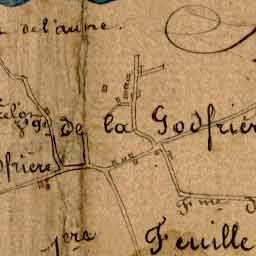 de l'aune.
de la Godfrière
dfrière
rue
Fme d
1ère Feuille